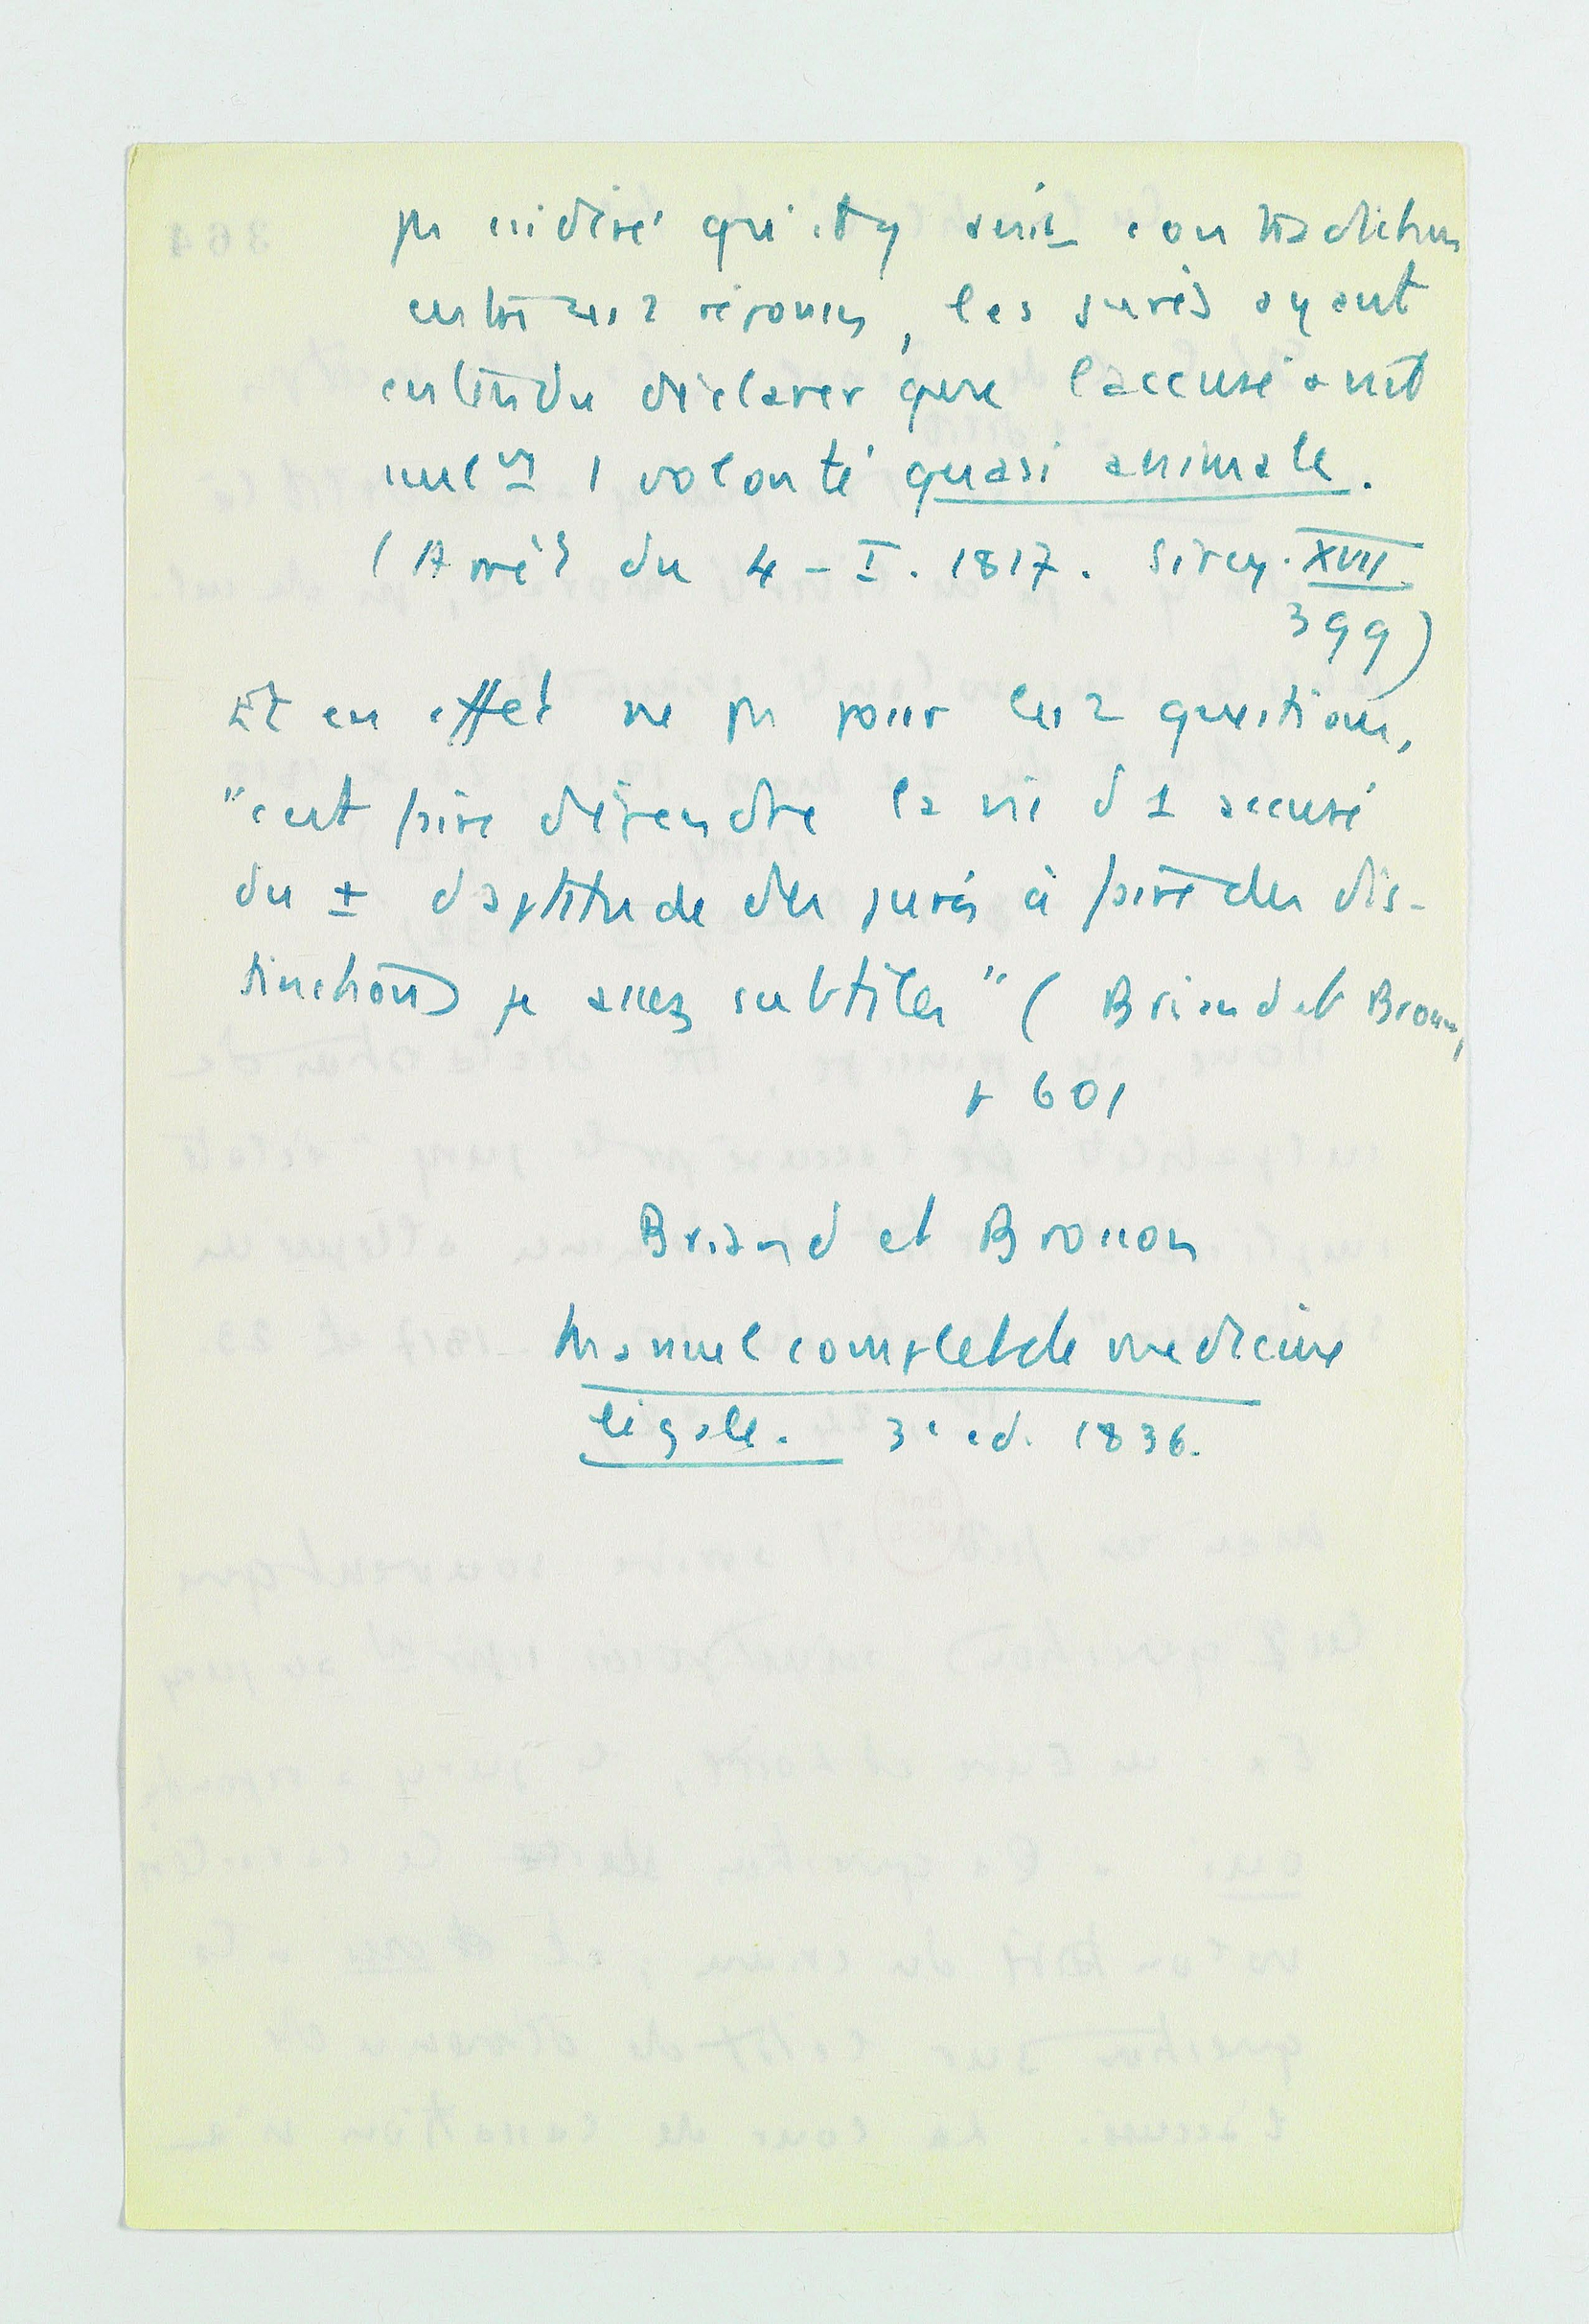 pas considéré qu'il y avait contradiction
entre ces 2 réponses, les jurés ayant
entendu déclarer que l'accusé avait
seulᵐ 1 volonté quasi animale.
(Arrêt du 4-I. 1817. Sirey. XVII
399)
Et en effet ne pas poser les 2 questions,
"c'est faire dépendre la vie d'1 accusé
du ± d'aptitude des jurés à faire des dis-
tinctions assez subtiles" (Briand et Brosson,
p 601
Briand et Brosson
Manuel complet de médecine
légale. 3e ed. 1836.